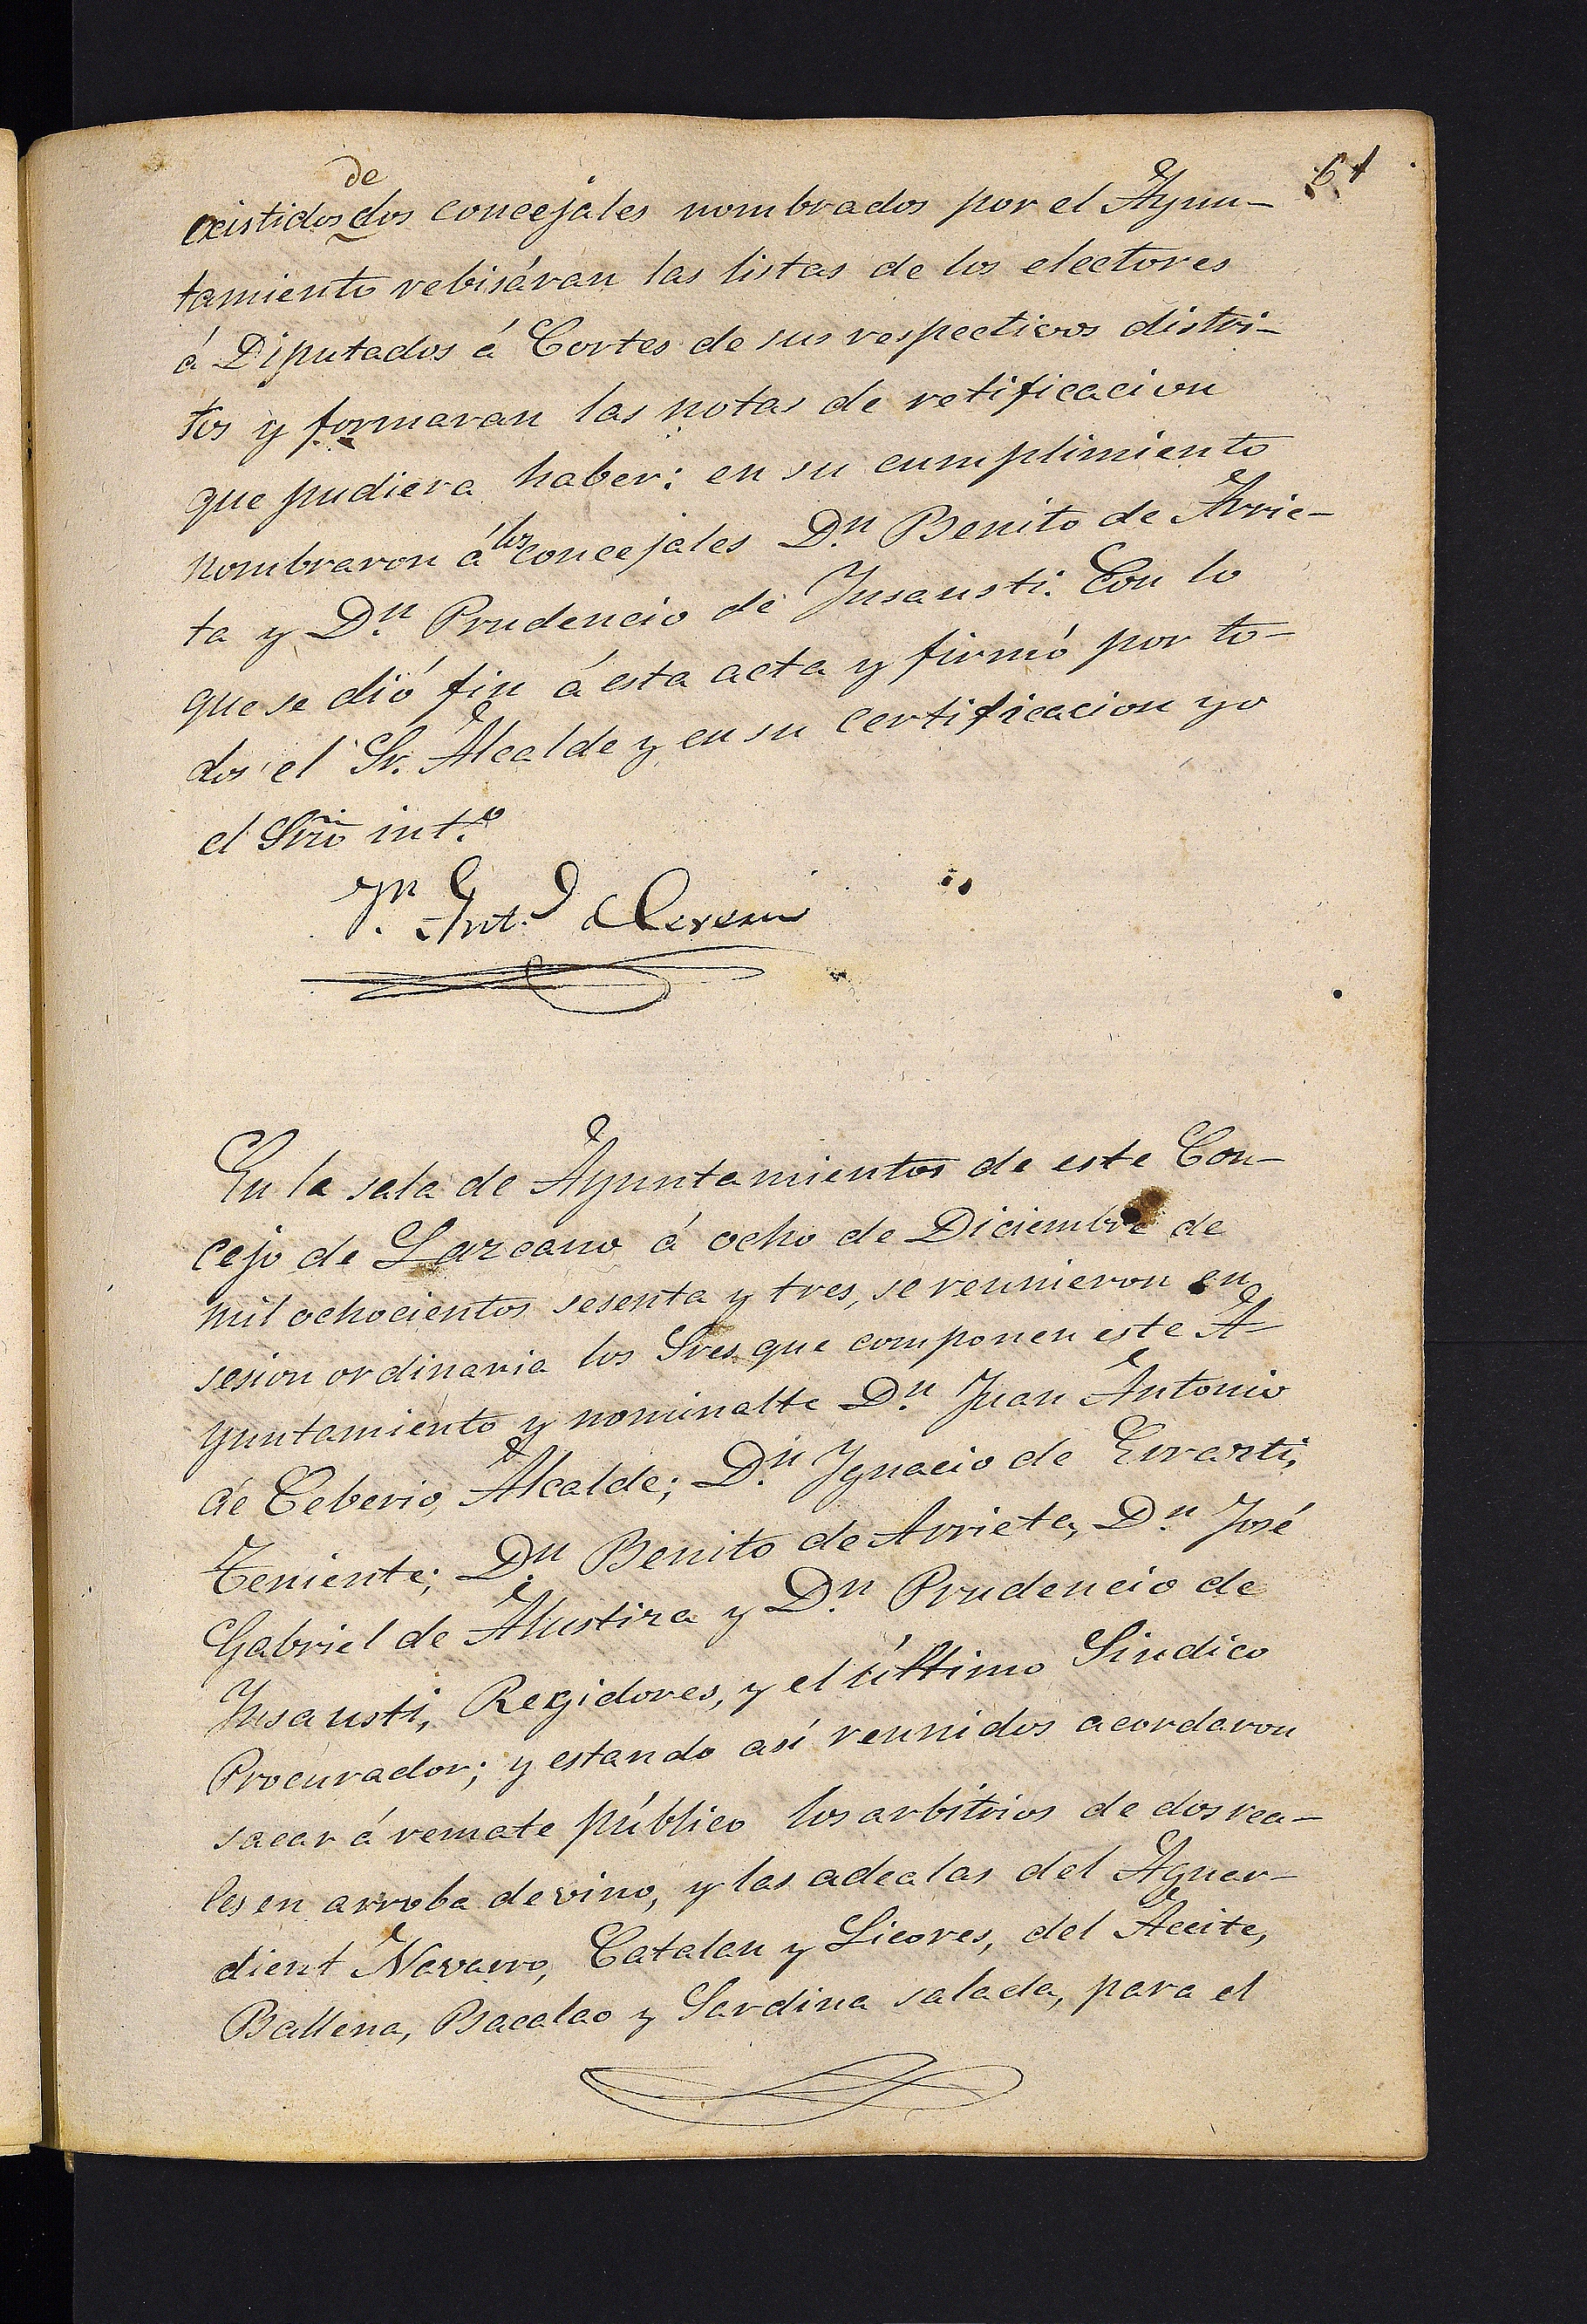 61
existidos de dos concejales nombrados por el Ayun-
tamiento rebisáran las listas de los electores
á Diputados á Cortes de sus respectivos distri-
tos y formaran las notas de retificacion
que pudiera haber: en su cumplimiento
nombraron á los concejales D.n Benito de Arrie-
ta y D.n Prudencio de Insausti. Con lo
que se dió fin á esta acta y firmó por to-
dos el Sr. Alcalde y en su certificacion yo
el Srio int.o
Jn Ant.o
En la sala de Ayuntamientos de este Con-
cejo de Lazcano á ocho de Diciembre de
mil ochocientos sesenta y tres, se reunieron en
sesion ordinaria los Sres que componen este A-
yuntamiento y nominalte D.n Juan Antonio
de Ceberio, Alcalde; D.n Ygnacio de Errazti,
Teniente; D.n Benito de Arrieta, D.n José
Gabriel de Alustiza y D.n Prudencio de
Insausti, Regidores, y el último Sindico
Procurador; y estando así reunidos acordaron
sacar á remate público los arbitrios de dos rea-
les en arroba de vino, y las adealas del Aguar-
dient Navarro, Catalan y Licores, del Aceite,
Ballena, Bacalao y Sardina salada, para el